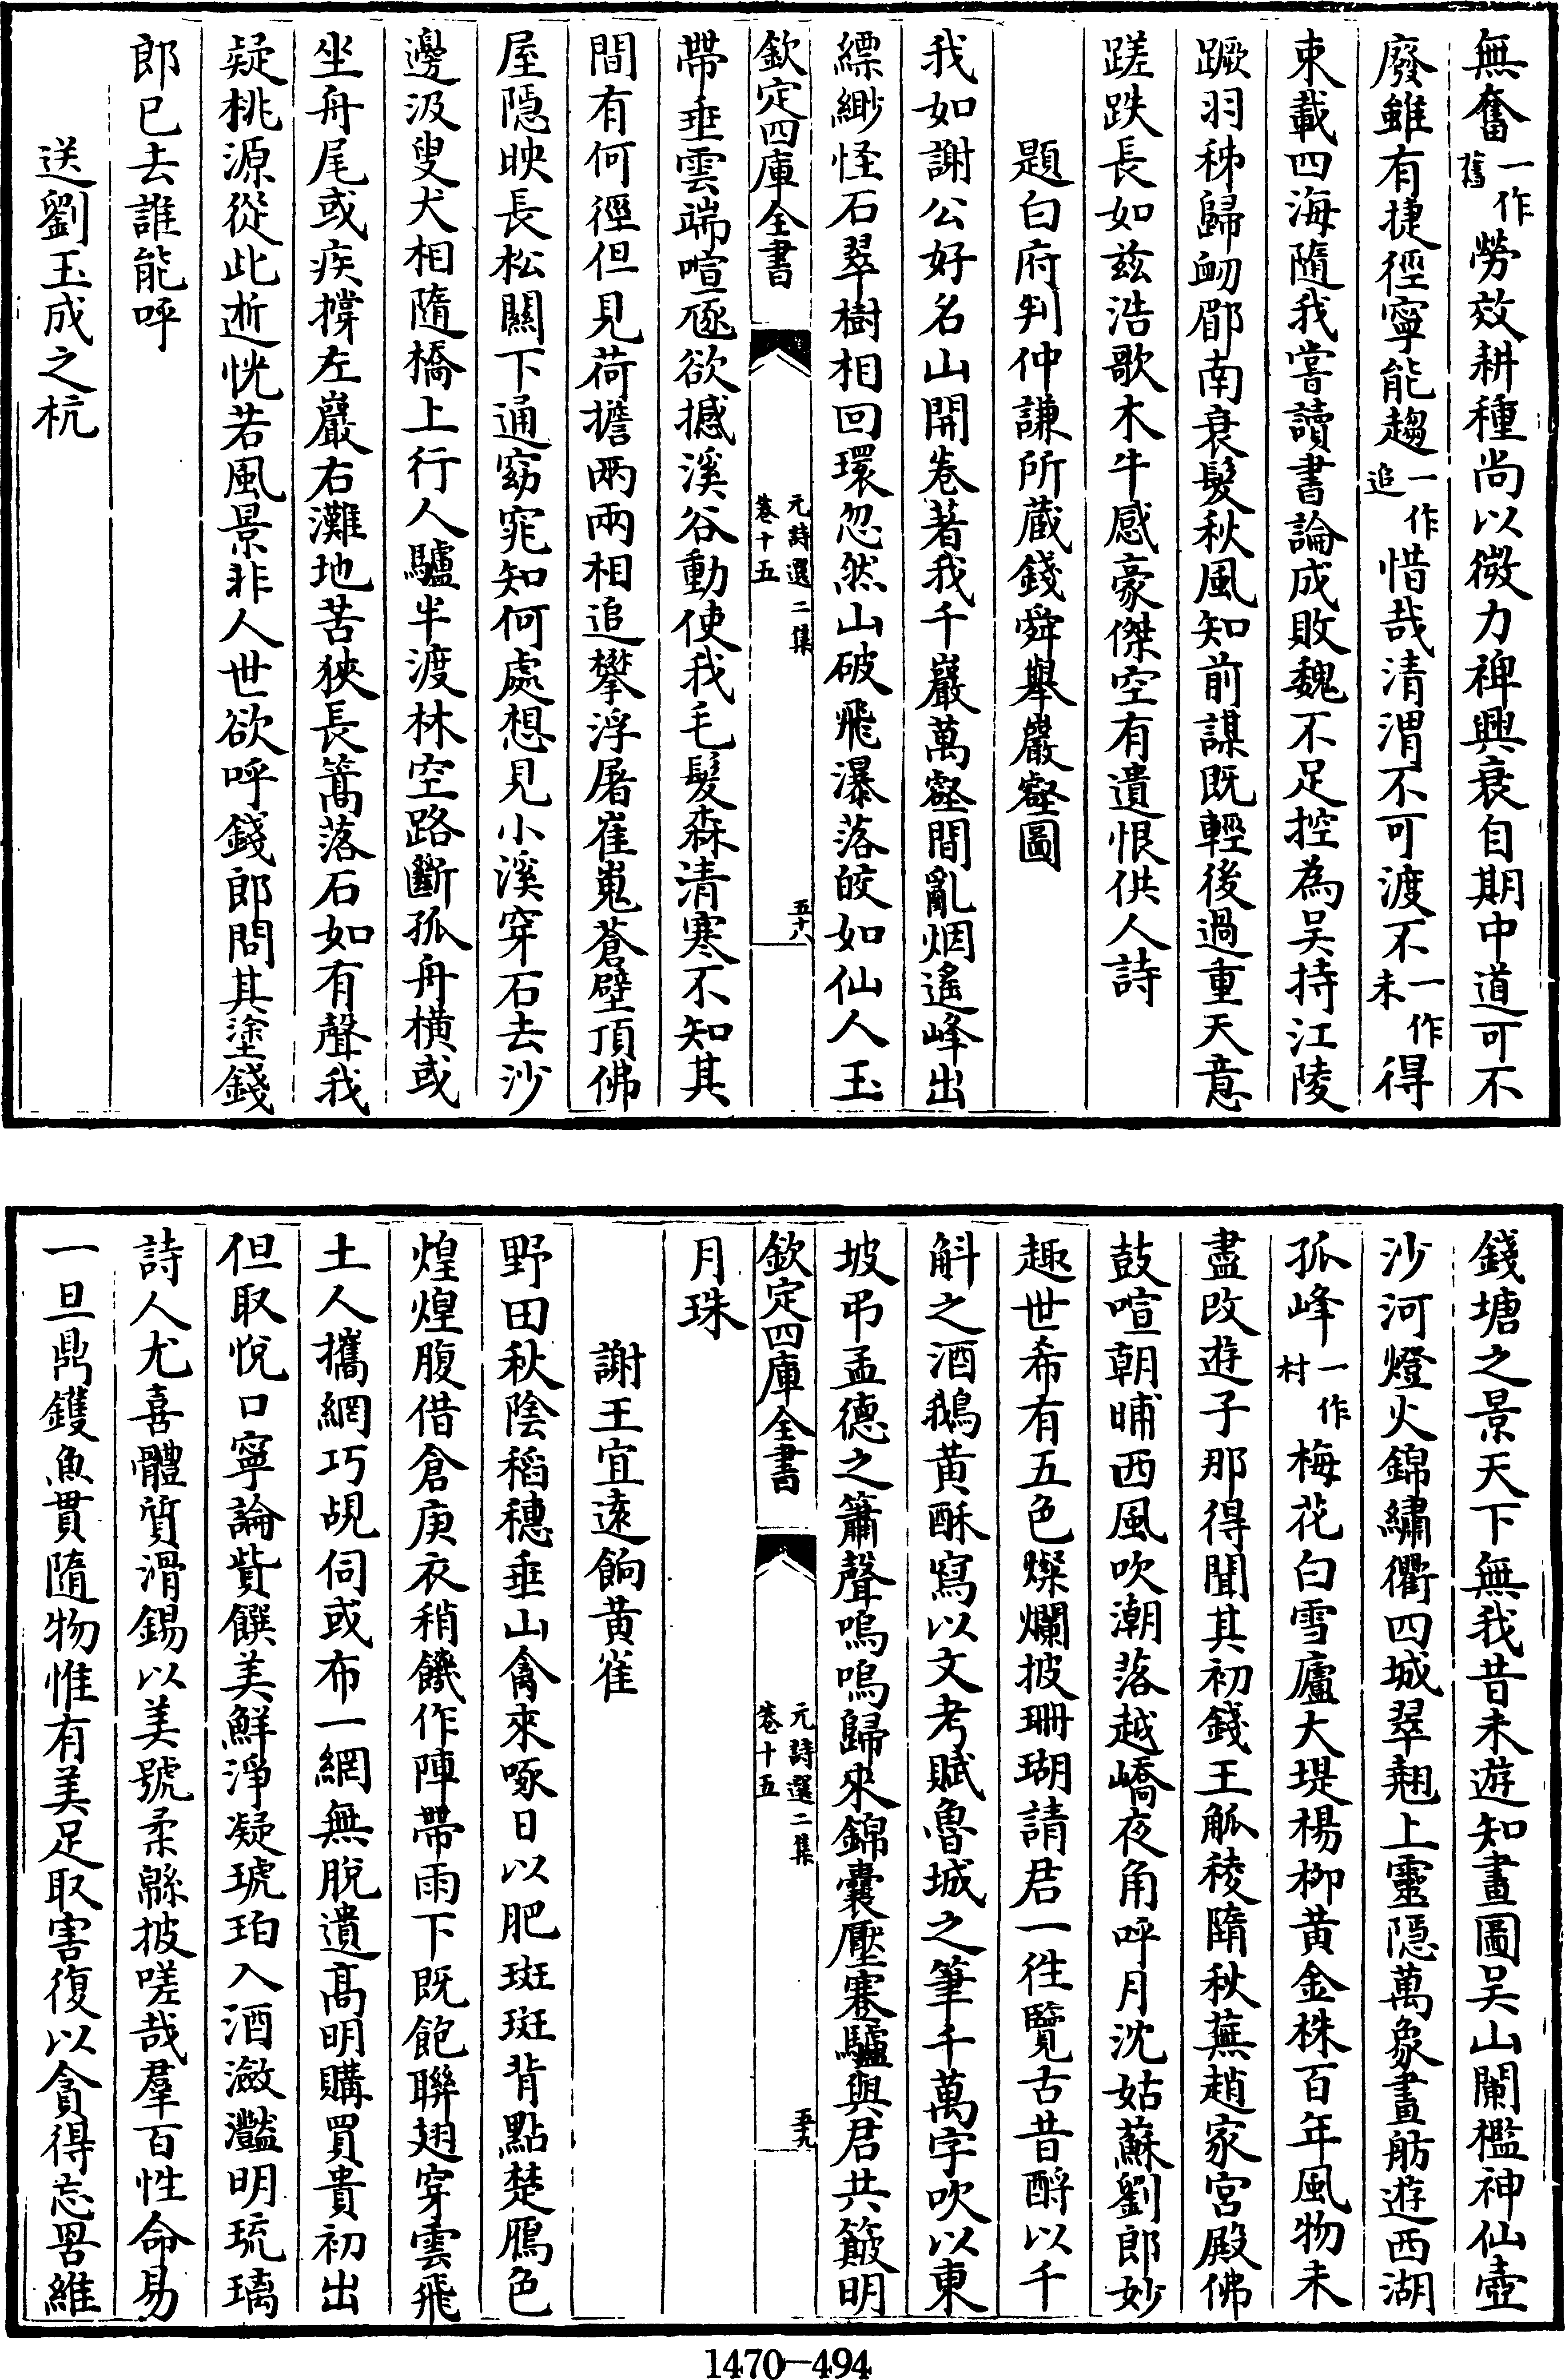 無奮一作舊勞效耕種尚以微力裨興衰自期中道可不
廢雖有捷徑寧能趨一作追惜哉清渭不可渡不一作未得
束載四海隨我嘗讀書論成敗魏不足控為吴持江陵
蹶羽秭歸衂郿南衰髮秋風知前謀既輕後過重天意
蹉跌長如兹浩歌木牛感豪傑空有遺恨供人詩
題白府判仲謙所藏錢舜舉巖壑圖
我如謝公好名山開卷著我千巖萬壑間亂烟遙峰出
縹緲怪石翠樹相回環忽然山破飛瀑落皎如仙人玉
欽定四庫全書 元詩選二集 卷十五 五十八
帶垂雲端喧豗欲撼溪谷動使我毛髮森清寒不知其
間有何徑但見荷擔兩兩相追攀浮屠崔嵬蒼壁頂佛
屋隱映長松關下通窈窕知何處想見小溪穿石去沙
邊汲叟犬相隨橋上行人驢半渡林空路斷孤舟横或
坐舟尾或疾撐左巖右灘地苦狹長篙落石如有聲我
疑桃源從此逝恍若風景非人世欲呼錢郎問其塗錢
郎已去誰能呼
送劉玉成之杭
錢塘之景天下無我昔未遊知畫圖吴山闌檻神仙壺
沙河燈火錦繡衢四城翠翹上靈隱萬象畫舫遊西湖
孤峰一作村梅花白雪廬大堤楊柳黄金株百年風物未
盡改遊子那得聞其初錢王觚稜隋秋蕪趙家宫殿佛
鼓喧朝晡西風吹潮落越嶠夜角呼月沈姑蘇劉郎妙
趣世希有五色燦爛披珊瑚請君一徃覽古昔酹以千
斛之酒鵝黄酥寫以文考賦魯城之筆千萬字吹以東
坡弔孟德之簫聲嗚嗚歸來錦囊壓蹇驢與君共簸明
欽定四庫全書 元詩選二集 卷十五 五十九
月珠
謝王宜遠餉黄雀
野田秋陰稻穗垂山禽來啄日以肥斑斑背點楚鴈色
煌煌腹借倉庚衣稍饑作陣帶雨下既飽聯翅穿雲飛
土人攜網巧覘伺或布一網無脫遺髙明購買貴初出
但取悅口寧論貲饌美鮮淨凝琥珀入酒瀲灩明琉璃
詩人尤喜體質滑錫以美號柔緜披嗟哉羣百性命易
一旦鼎鑊魚貫隨物惟有美足取害復以貪得忘罟維
1470—494